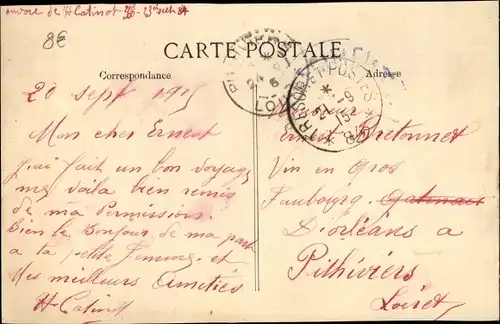 envoie de H Catinot
8€
CARTE POSTALE
Correspondance
Adresse
20 sept 1915
Mon cher Ernest
J'ai fait un bon voyage
me voila bien remis
de ma Permissions.
bien le bonjour de ma part
a ta petite femme et
Mes meilleurs Amities
H Catinot
TRESOR ET POSTES
Monsieur
Ernest Bretonnet
Vin en Gros
Faubourg Gatinais
D'orléans a
Pithiviers
Loiret